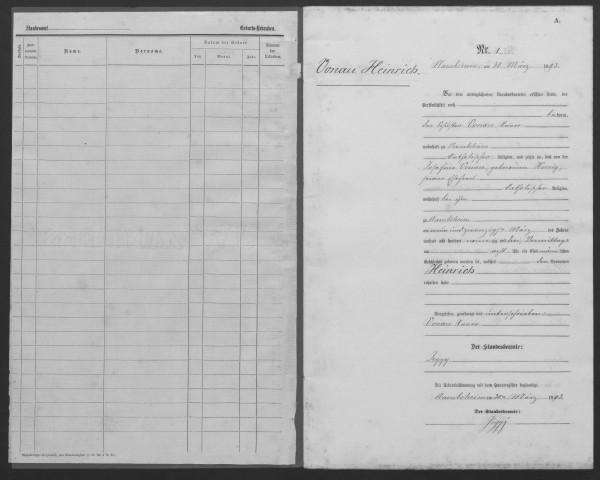 Standesamt
Geburts-Urkunden.
Name.
Vorname.
Datum der Geburt
Tag.
Monat.
Jahr.
Nummer der Urkunden.
A.
Nr. 1.
Vonau Heinrich.
am 30. März 1893.
Vor dem unterzeichneten Standesbeamten erschien heute, der
Persönlichkeit nach
bekannt,
der Vonau Xaver
wohnhaft zu
katholischer Religion, und zeigte an, daß von der
Josefine Vonau, geborenen
seiner Ehefrau
katholischer Religion,
wohnhaft bei ihm
zu
am neun und zwanzigsten März des Jahres
tausend acht hundert neunzig und drei, Vormittags
um acht Uhr ein Kind männlichen
Geschlechts geboren worden sei, welches den Vornamen
Heinrich
erhalten habe
Vorgelesen, genehmigt und unterschrieben
Vonau Xaver
Der Standesbeamte:
Die Uebereinstimmung mit dem Hauptregister beglaubigt
am 30. März 1893.
Der Standesbeamte: